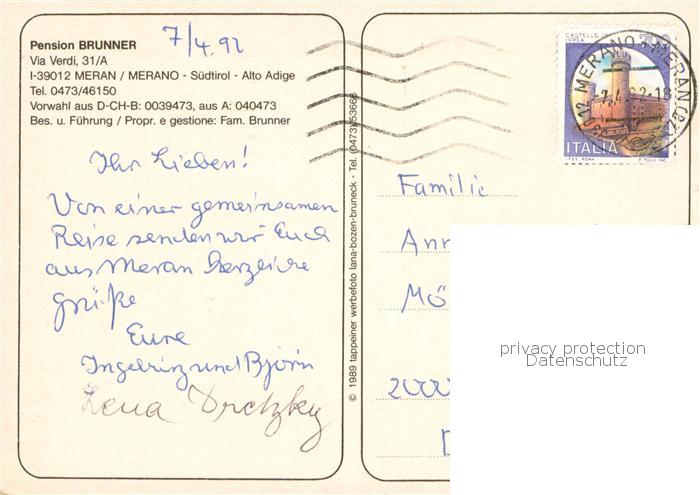 Pension BRUNNER
Via Verdi, 31/A
I-39012 MERAN / MERANO - Südtirol - Alto Adige
Tel. 0473/46150
Vorwahl aus D-CH-B: 0039473, aus A: 040473
Bes. u. Führung / Propr. e gestione: Fam. Brunner
7/4.92
Ihr Lieben!
Von einer gemeinsamen
Reise senden wir Euch
aus Meran herzliche
Grüße
Eure
und Björn
Lena Dretzky
© 1989 tappeiner werbefoto lana-bozen-bruneck - Tel. (0473) 53666
CASTELLO
IVREA
ITALIA
I.P.Z.S. ROMA
39012 MERANO - MERAN (BZ)
-7.4.92-18
Familie
Ann
Mö
2000
D
privacy protection
Datenschutz